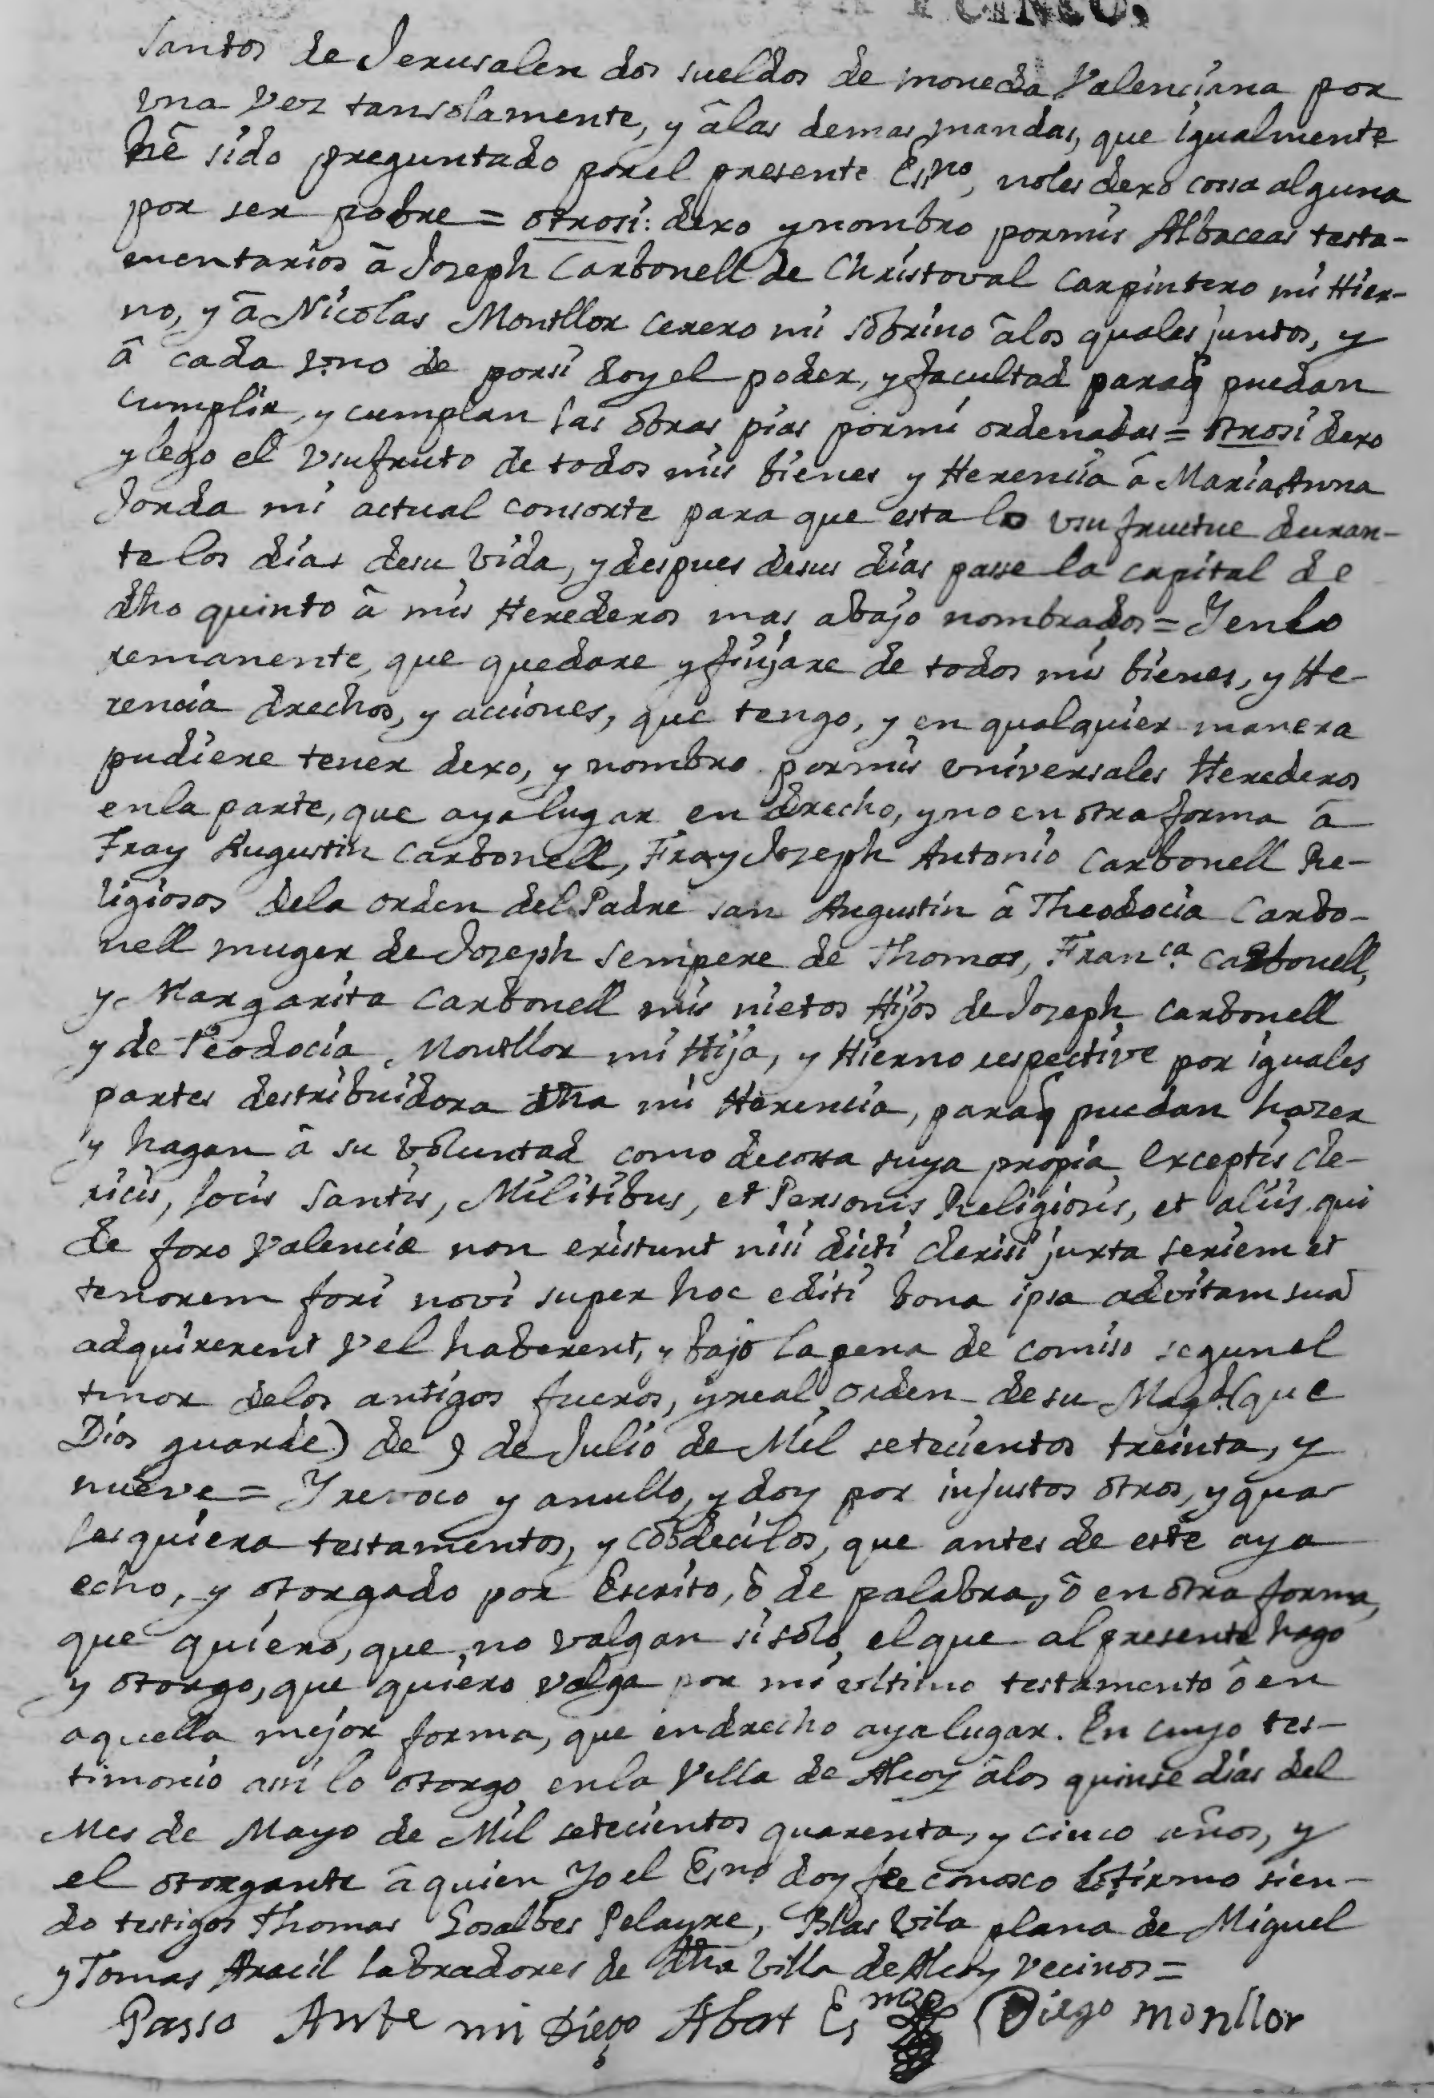 Y CINCO.
Santos de Jerusalen dos sueldos de moneda Valenciana por
una vez tansolamente, y â las demas mandas, que igualmente
hê sido preguntado porel presente Essno, noles dexo cossa alguna
por ser pobre = otrosi: dexo y nombro pormis Albaceas testa-
mentarios â Joseph Carbonell de Christoval Carpintero mi Hier-
no, y â Nicolas Montllor Cerero mi sobrino âlos quales juntos, y
â cada uno de porsi doy el poder, y facultad paraq̃ puedan
cumplir, y cumplan las obras pias pormi ordenadas = otrosi dexo
y lego el usufruto de todos mis bienes y Herencia â Maria Anna
Jorda mi actual consorte para que esta lo usufructue duran-
te los dias desu vida, y despues desus dias passe la capital de
dho quinto â mis Herederos mas abajo nombrados = Y en lo
remanente, que quedare y fiujare de todos mis bienes, y He-
rencia drechos, y acciones, que tengo, y en qualquier manera
pudiere tener dexo, y nombro pormis universales Herederos
enla parte, que aya lugar en drecho, y no en otra forma â
Fray Augustin Carbonell, Fray Joseph Antonio Carbonell Re-
ligiosos dela orden del Padre san Augustin â Theodocia Carbo-
nell muger de Joseph Sempere de Thomas, Franca. Carbonell,
y Margarita Carbonell mis nietos Hijos de Joseph Carbonell
y de Teodocia Montllor mi Hija, y Hierno respective por iguales
partes destribuidora dha mi Herencia, paraq̃ puedan hazer
y hagan â su voluntad como decossa suya propia Exceptis Cle-
ricis, locis Santis, Militibus, et Personis Religiosis, et aliis qui
de foro Valenciæ non existunt nisi dicti clerisi juxta seriem et
tenorem fori novi super hoc editi bona ipsa advitam suã
adquirerent vel haberent, y bajo la pena de comiso segun el
tenor delos antigos fueros, y real orden de su Magd. (que
Dios guarde) de 9 de Julio de Mil setecientos treinta, y
nueve = Y revoco y anullo, y doy por injustos otros, y qua-
lesquiera testamentos, y codecilos, que antes de este aya
echo, y otorgado por Escrito, ô de palabra, ô en otra forma,
que quiero, que no valgan si solo el que al presente hago
y otorgo, que quiero valga por mi ultimo testamento ô en
aquella mejor forma, que en drecho aya lugar. En cuyo tes-
timonio assi lo otorgo enla Villa de Alcoy âlos quinse dias del
Mes de Mayo de Mil setecientos quarenta, y cinco años, y
el otorgante â quien Yo el Essno doy fee conosco lo firmo sien-
do testigos Thomas Gosalbes Pelayre, Blas Vila plana de Miguel
y Tomas Aracil labradores de dha Villa de Alcoy Vecinos =
Passo Ante mi Diego Abat Essno Diego monllor